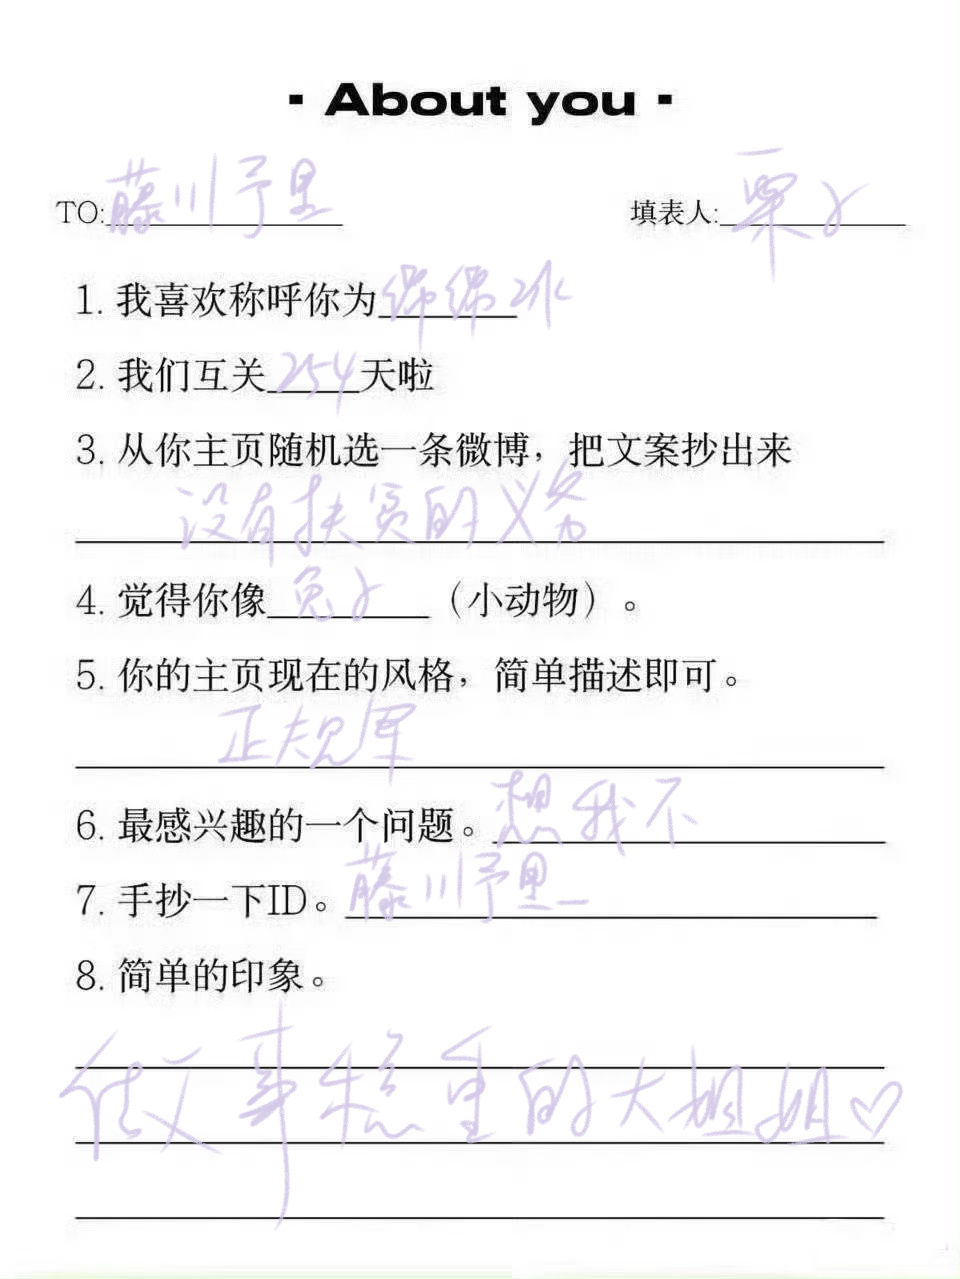 - About you -
TO:藤川予里 填表人:栗子
1. 我喜欢称呼你为绵绵冰
2. 我们互关254天啦
3. 从你主页随机选一条微博，把文案抄出来
没有扶贫的义务
4. 觉得你像兔子（小动物）。
5. 你的主页现在的风格，简单描述即可。
正规军
6. 最感兴趣的一个问题。想我不
7. 手抄一下ID。藤川予里_
8. 简单的印象。
做事稳重的大姐姐♡